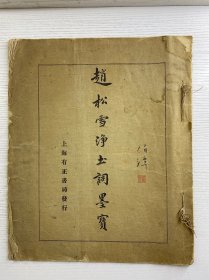 趙松雪淨土詞墨寶
上海有正書局發行